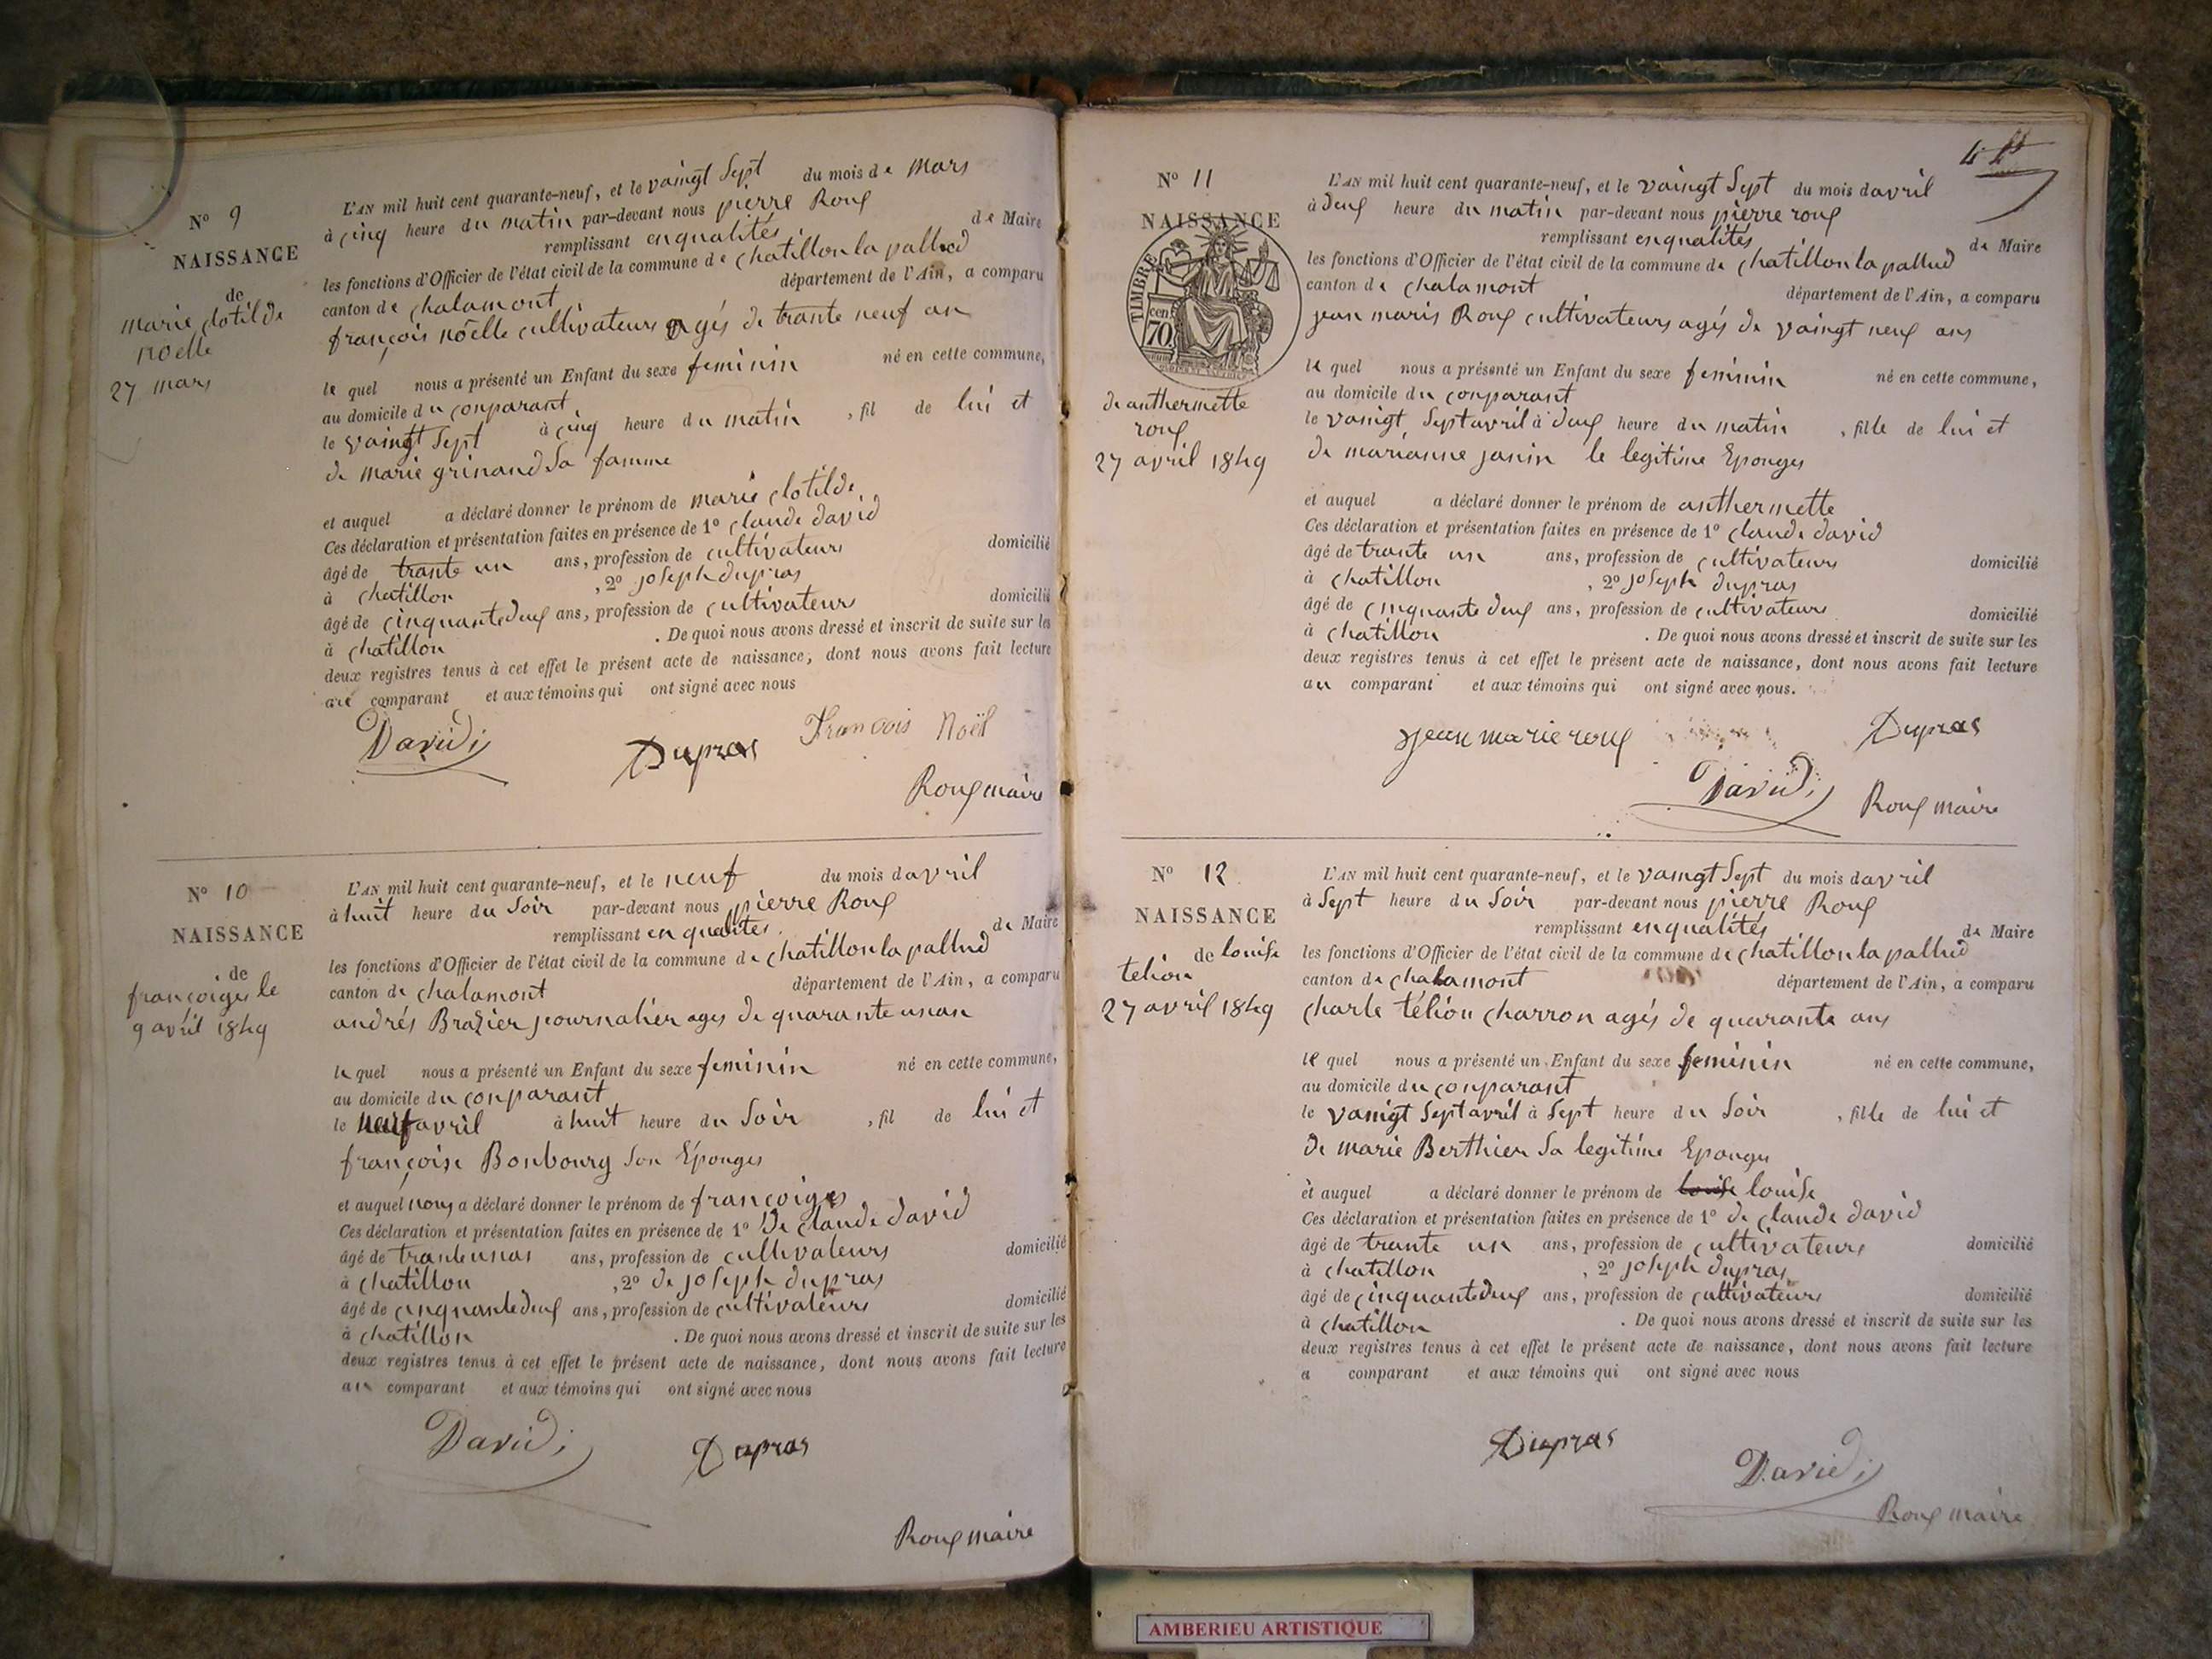 N° 9
NAISSANCE
de
marie clotilde
noelle
27 mars
L'AN mil huit cent quarante-neuf, et le vaingt Sept du mois de Mars
à cinq heure du matin par-devant nous pierre Roux
remplissant enqualités de Maire
les fonctions d'Officier de l'état civil de la commune de chatillon la pallud
canton de chalamont département de l'Ain, a comparu
françois nöelle cultivateurs agés de trante neuf an
le quel nous a présenté un Enfant du sexe feminin né en cette commune,
au domicile du conparant
le vaingt Sept à cinq heure du matin , fil de lui et
de marie grinand Sa famme
et auquel a déclaré donner le prénom de marie clotilde
Ces déclaration et présentation faites en présence de 1° claude david
âgé de trante un ans, profession de cultivateurs domicilié
à chatillon , 2° joseph dupras
âgé de cinquante deux ans, profession de cultivateurs domicilié
à chatillon . De quoi nous avons dressé et inscrit de suite sur les
deux registres tenus à cet effet le présent acte de naissance, dont nous avons fait lecture
au comparant et aux témoins qui ont signé avec nous
David
Dupras
François Noël
Roux maire
N° 10
NAISSANCE
de
9 avril 1849
L'AN mil huit cent quarante-neuf, et le neuf du mois davril
à huit heure du Soir par-devant nous pierre Roux
remplissant en qualités de Maire
les fonctions d'Officier de l'état civil de la commune de chatillon la pallud
canton de chalamont département de l'Ain, a comparu
andrés Brazier journalier ages de quarante unan
le quel nous a présenté un Enfant du sexe feminin né en cette commune,
au domicile du conparant
le neuf avril à huit heure du Soir , fil de lui et
françoise Bonbourg Son Eponges
et auquel nous a déclaré donner le prénom de françoiges
Ces déclaration et présentation faites en présence de 1° De claude david
âgé de ans, profession de cultivateurs domicilié
à chatillon , 2° de joseph dupras
âgé de cinquante deux ans, profession de cultivateurs domicilié
à chatillon . De quoi nous avons dressé et inscrit de suite sur les
deux registres tenus à cet effet le présent acte de naissance, dont nous avons fait lecture
au comparant et aux témoins qui ont signé avec nous
David
Dupras
Roux maire
N° 11
NAISSANCE
TIMBRE
70 cen
de anthermette
roux
27 avril 1849
L'AN mil huit cent quarante-neuf, et le vaingt Sept du mois davril
à deux heure du matin par-devant nous pierre roux
remplissant enqualités de Maire
les fonctions d'Officier de l'état civil de la commune de chatillon la pallud
canton de chalamont département de l'Ain, a comparu
jean maris Roux cultivateurs agés de vaingt neuf ans
le quel nous a présenté un Enfant du sexe feminin né en cette commune,
au domicile du conparant
le vaingt Sept avril à deux heure du matin , fille de lui et
de marianne janin le legitime Eponges
et auquel a déclaré donner le prénom de anthermette
Ces déclaration et présentation faites en présence de 1° claude david
âgé de trante un ans, profession de cultivateurs domicilié
à chatillon , 2° joseph dupras
âgé de cinquante deux ans, profession de cultivateurs domicilié
à chatillon . De quoi nous avons dressé et inscrit de suite sur les
deux registres tenus à cet effet le présent acte de naissance, dont nous avons fait lecture
au comparant et aux témoins qui ont signé avec nous.
jean marie roux
Dupras
David
Roux maire
N° 12
NAISSANCE
de louise
telion
27 avril 1849
L'AN mil huit cent quarante-neuf, et le vaingt Sept du mois davril
à Sept heure du Soir par-devant nous pierre Roux
remplissant enqualités de Maire
les fonctions d'Officier de l'état civil de la commune de chatillon la pallud
canton de chalamont département de l'Ain, a comparu
charle télion charron agés de quarante ans
le quel nous a présenté un Enfant du sexe feminin né en cette commune,
au domicile du conparant
le vaingt Sept avril à Sept heure du Soir , fille de lui et
de marie Berthier Sa legitime Eponge
et auquel a déclaré donner le prénom de louise louise
Ces déclaration et présentation faites en présence de 1° de claude david
âgé de trante un ans, profession de cultivateurs domicilié
à chatillon , 2° joseph dupras
âgé de cinquante deux ans, profession de cultivateurs domicilié
à chatillon . De quoi nous avons dressé et inscrit de suite sur les
deux registres tenus à cet effet le présent acte de naissance, dont nous avons fait lecture
a comparant et aux témoins qui ont signé avec nous
Dupras
David
Roux maire
AMBERIEU ARTISTIQUE